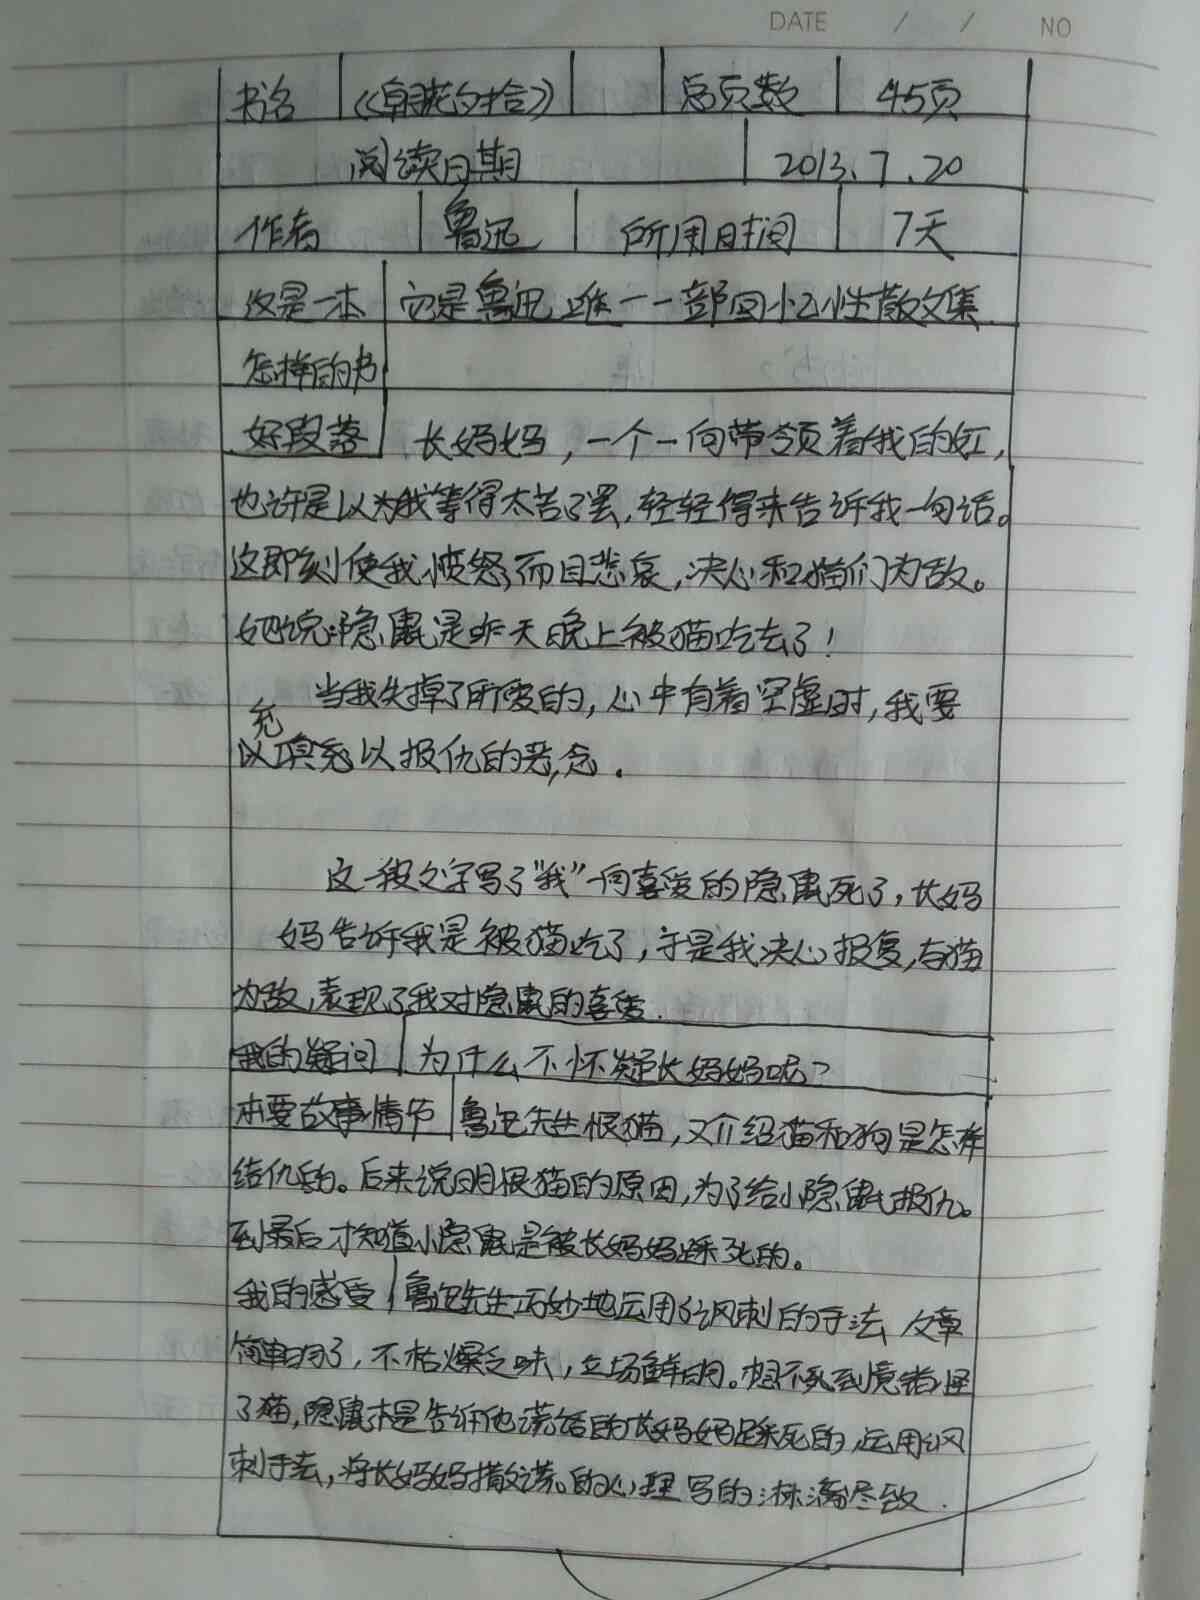 DATE / / NO
书名 《朝花夕拾》 总页数 45页
阅读日期 2013.7.20
作者 鲁迅 所用时间 7天
这是一本 它是鲁迅唯一一部回忆性散文集.
怎样的书
好段落 长妈妈，一个一向带领着我的女工，
也许是以为我等得太苦了罢，轻轻得来告诉我一句话。
这即刻使我愤怒，而且悲哀，决心和猫们为敌。
她说：隐鼠是昨天晚上被猫吃去了！
当我失掉了所爱的，心中有着空虚时，我要
充
以填充以报仇的恶念.
这一段文字写了“我”一向喜爱的隐鼠死了，长妈
妈告诉我是被猫吃了，于是我决心报复，与猫
为敌，表现了我对隐鼠的喜爱.
我的疑问 为什么不怀疑长妈妈呢？
本要故事情节 鲁迅先生恨猫，又介绍猫和狗是怎样
结仇的。后来说明恨猫的原因，为了给小隐鼠报仇。
到最后才知道小隐鼠是被长妈妈踩死的。
我的感受 鲁迅先生巧妙地运用了讽刺的手法 文章
简单明了，不枯燥乏味，立场鲜明。想不到竟错怪
了猫，隐鼠是告诉他谎话的长妈妈踩死的，运用讽
刺手法，将长妈妈撒谎的心理写的淋漓尽致.